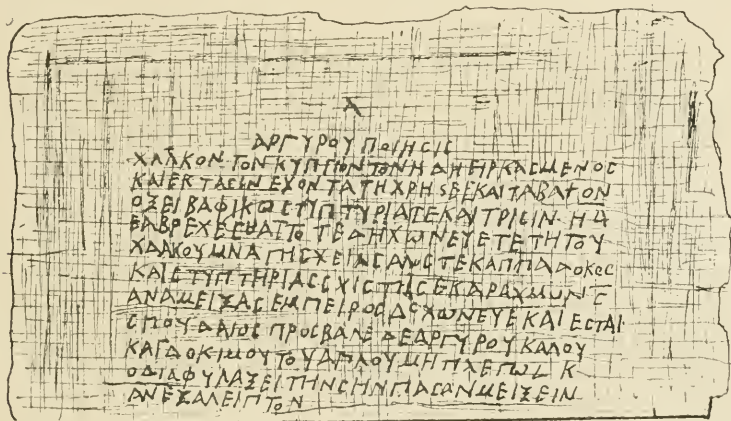 Α
ΑΡΓΥΡΟΥ ΠΟΙΗCΙC
ΧΑΛΚΟΝ ΤΟΝ ΚΥΠΡΙΟΝ ΤΟΝ ΗΔΗ ΕΙΡΚΑCΜΕΝΟC
ΚΑΙ ΕΚΤΑCΙΝ ΕΧΟΝΤΑ ΤΗ ΧΡΗCΕΙ ΚΑΤΑΒΑΨΟΝ
ΟΞΕΙ ΒΑΦΙΚΩ CΤΥΠΤΥΡΙΑ ΤΕ ΚΑΙ ΤΡΙCΙΝ Η
ΕΑ ΒΡΕΧΕCΘΑΙ ΤΟΤΕ ΔΗ ΧΩΝΕΥΕΤΕ ΤΗ ΤΟΥ
ΧΑΛΚΟΥ ΜΝΑ ΓΗC ΧΕΙΑC ΑΛΟC ΤΕ ΚΑΠΠΑΔΟΚΟC
ΚΑΙ CΤΥΠΤΗΡΙΑC CΧΙCΤΗC ΕΚ ΔΡΑΧΜΩΝ Ϛ
ΑΝΑΜΕΙΞΑC ΕΜΠΕΙΡΟC ΔΕ ΧΩΝΕΥΕ ΚΑΙ ΕCΤΑΙ
CΠΟΥΔΑΙΟC ΠΡΟCΒΑΛΕ ΔΕ ΑΡΓΥΡΟΥ ΚΑΛΟΥ
ΚΑΙ ΔΟΚΙΜΟΥ ΤΟΥ ΑΠΛΟΥ ΜΗ ΠΛΕΠΩ Κ
Ο ΔΙΑΦΥΛΑΞΕΙ ΤΗΝ CΥΝΠΑCΑΝ ΜΕΙΞΕΙΝ
ΑΝΕΞΑΛΕΙΠΤΟΝ